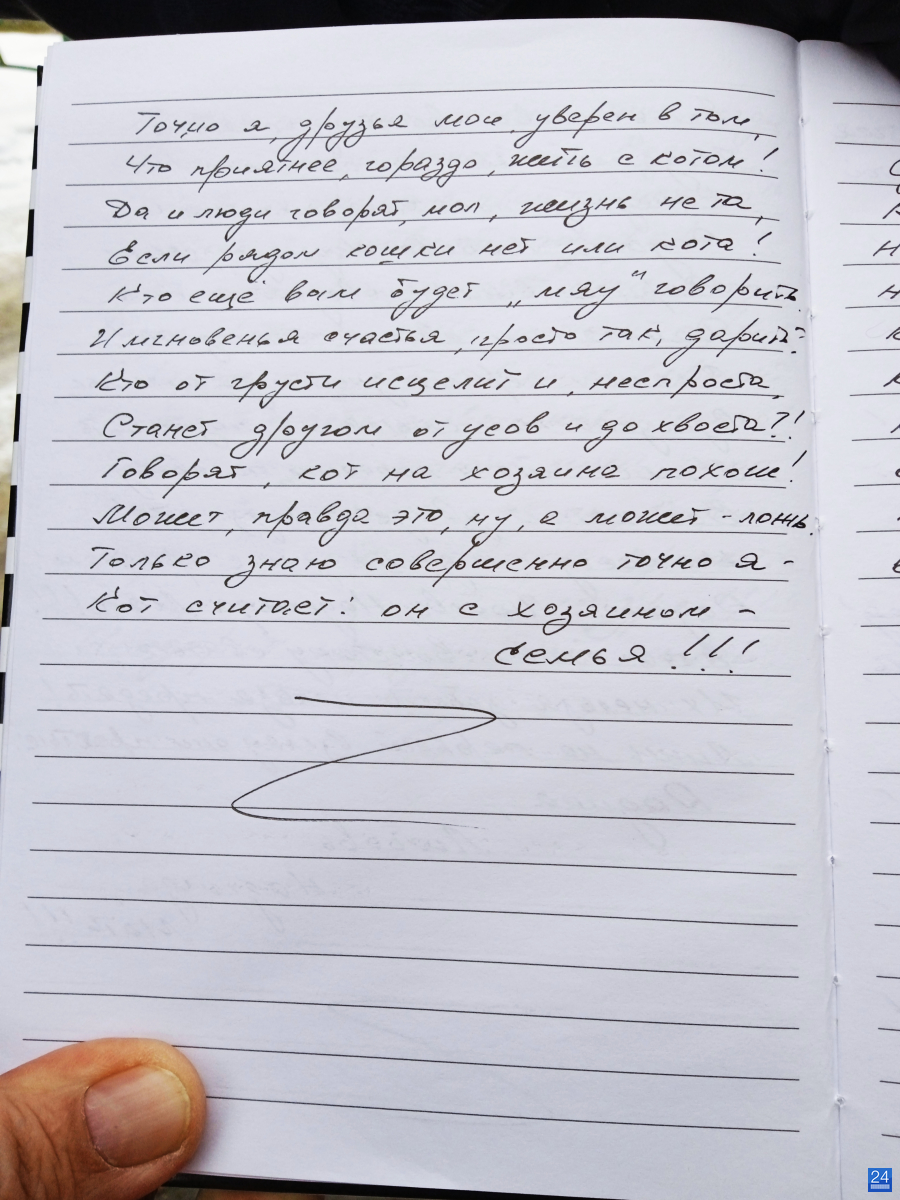 Точно я, друзья мои, уверен в том,
Что приятнее, гораздо, жить с котом!
Да и люди говорят, мол, жизнь не та,
Если рядом кошки нет или кота!
Кто ещё вам будет „мяу" говорить
И мгновенья счастья, просто так, дарить?
Кто от грусти исцелит и, неспроста,
Станет другом от усов и до хвоста?!
Говорят, кот на хозяина похож!
Может, правда это, ну, а может - ложь.
Только знаю совершенно точно я -
Кот считает: он с хозяином -
семья!!!
24